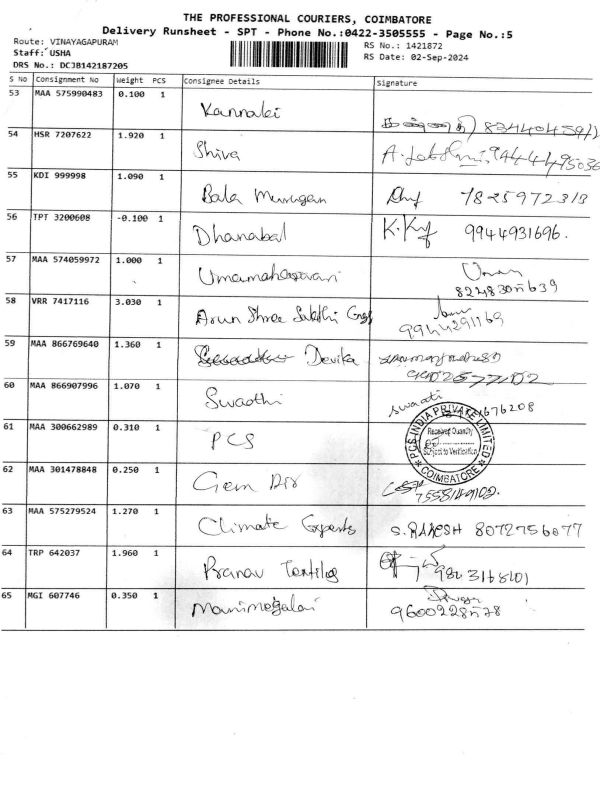 THE PROFESSIONAL COURIERS, COIMBATORE
Delivery Runsheet - SPT - Phone No.:0422-3505555 - Page No.:5
Route: VINAYAGAPURAM
Staff: USHA
DRS No.: DCJB142187205
RS No.: 1421872
RS Date: 02-Sep-2024
S No Consignment No Weight PCS Consignee Details Signature
53 MAA 575990483 0.100 1 Kannaki
54 HSR 7207622 1.920 1 Shiva 9444495036
55 KDI 999998 1.090 1 Bala Murugan 7825972313
56 TPT 3200608 -0.100 1 Dhanabal 9944931696.
57 MAA 574059972 1.000 1 Umamaheswari
8248305639
58 VRR 7417116 3.030 1 Arun Shree Sakthi
9944291169
59 MAA 866769640 1.360 1 Devika
60 MAA 866907996 1.070 1 Swaothi swaati
676208
61 MAA 300662989 0.310 1 PCS
PCS INDIA PRIVATE LIMITED
Received Quantity
Subject to Verification
COIMBATORE
62 MAA 301478848 0.250 1 Gem
7558149102.
63 MAA 575279524 1.270 1 Climate Experts S. RAKESH 8072756077
64 TRP 642037 1.960 1 Pranav Textiles
65 MGI 607746 0.350 1 Manimegalai
9600228578